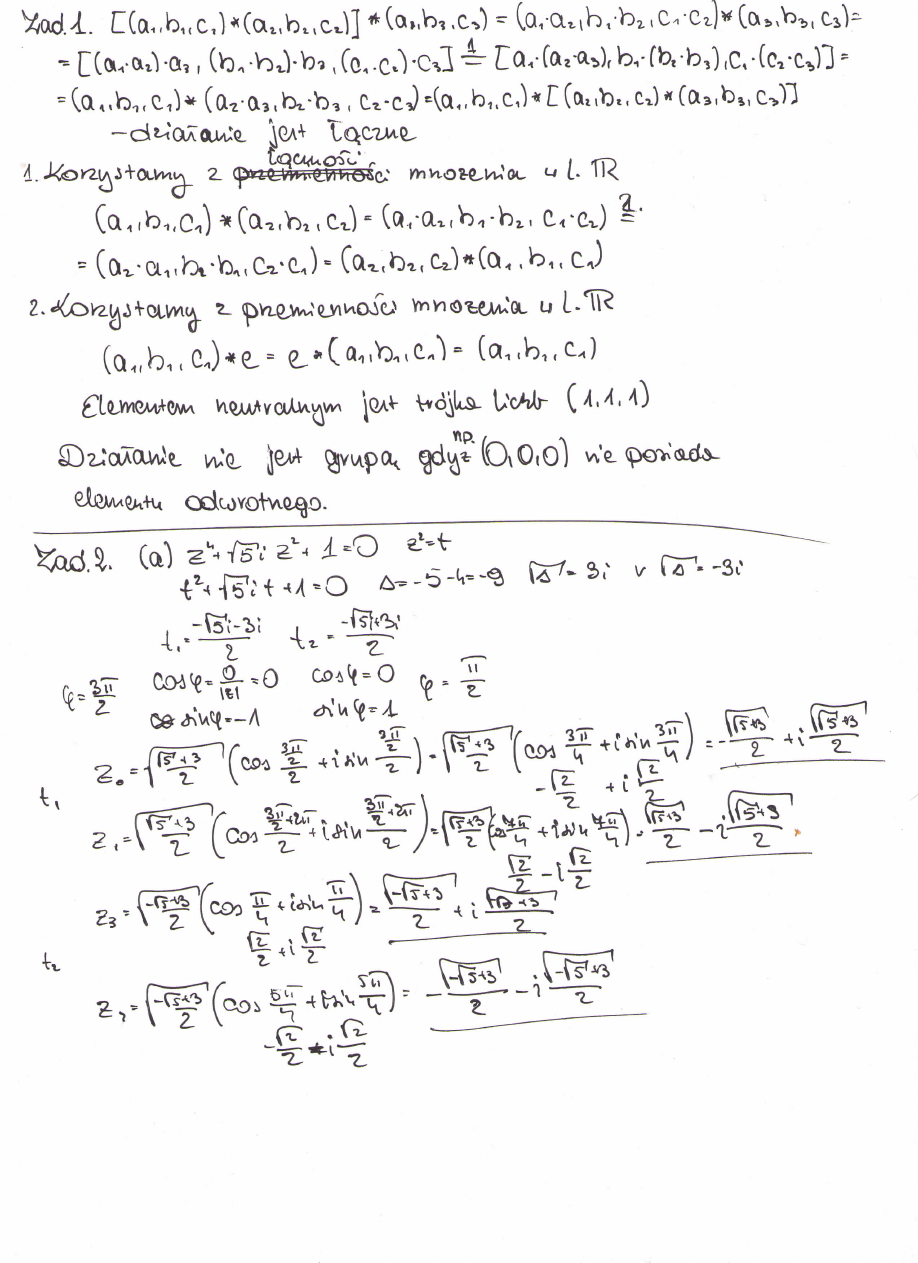 Zad.1. [(a₁,b₁,c₁)*(a₂,b₂,c₂)]*(a₃,b₃,c₃) = (a₁·a₂,b₁·b₂,c₁·c₂)*(a₃,b₃,c₃)=
= [(a₁·a₂)·a₃, (b₁·b₂)·b₃, (c₁·c₂)·c₃] =¹ [a₁·(a₂·a₃), b₁·(b₂·b₃), c₁·(c₂·c₃)] =
= (a₁,b₁,c₁)*(a₂·a₃, b₂·b₃, c₂·c₃) = (a₁,b₁,c₁)*[(a₂,b₂,c₂)*(a₃,b₃,c₃)]
- działanie jest łączne
1. Korzystamy z łączności mnożenia w l. ℝ
(a₁,b₁,c₁)*(a₂,b₂,c₂) = (a₁·a₂, b₁·b₂, c₁·c₂) =²·
= (a₂·a₁, b₂·b₁, c₂·c₁) = (a₂,b₂,c₂)*(a₁,b₁,c₁)
2. Korzystamy z przemienności mnożenia w l. ℝ
(a₁,b₁,c₁)*e = e*(a₁,b₁,c₁) = (a₁,b₁,c₁)
Elementem neutralnym jest trójka liczb (1,1,1)
Działanie nie jest grupą gdyż np. (0,0,0) nie posiada
elementu odwrotnego.
Zad.2. (a) z⁴+√5i z²+1=0 z²=t
t²+√5i t+1=0 Δ=-5-4=-9 √Δ=3i v √Δ=-3i
t₁=(-√5i-3i)/2 t₂=(-√5i+3i)/2
φ=3π/2 cosφ=0/|z|=0 cosφ=0 φ=π/2
sinφ=-1 sinφ=1
t₁ z₀=√((√5+3)/2)(cos (3π/2)/2 + i sin (3π/2)/2)=√((√5+3)/2)(cos 3π/4 + i sin 3π/4) = -√(√5+3)/2 + i√(√5+3)/2
-√2/2 + i√2/2
z₁=√((√5+3)/2)(cos (3π/2+2π)/2 + i sin (3π/2+2π)/2)=√((√5+3)/2)(cos 7π/4 + i sin 7π/4) = √(√5+3)/2 - i√(√5+3)/2
√2/2 - i√2/2
t₂ z₃=√((-√5+3)/2)(cos π/4 + i sin π/4) = √(-√5+3)/2 + i√(-√5+3)/2
√2/2 + i√2/2
z₂=√((-√5+3)/2)(cos 5π/4 + i sin 5π/4) = -√(-√5+3)/2 - i√(-√5+3)/2
-√2/2 - i√2/2